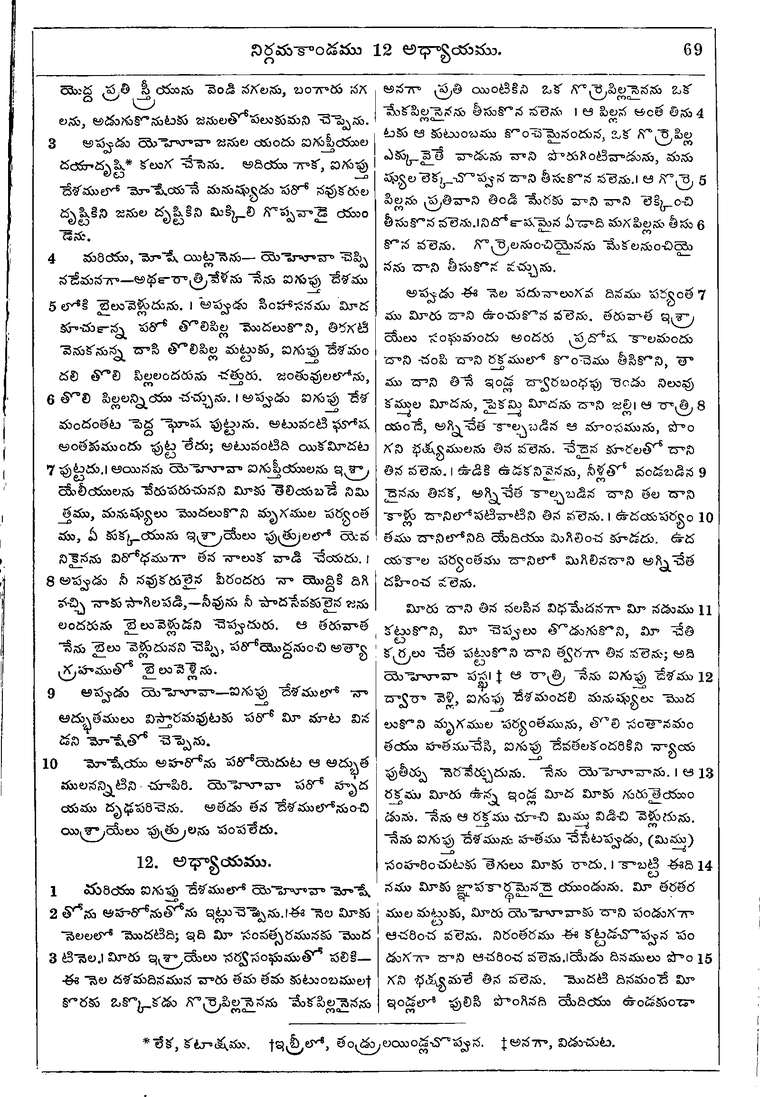 నిర్గమకాండము 12 అధ్యాయము. 69
యొద్ద ప్రతి స్త్రీయును వెండి నగలను, బంగారు నగ
లను, అడుగుకొనుటకు జనులతోపలుకుమని చెప్పెను.
3 అప్పుడు యెహోవా జనుల యందు ఐగుప్తీయుల
దయాదృష్టి* కలుగ చేసెను. అదియు గాక, ఐగుప్తు
దేశములో మోషేయనే మనుష్యుడు ఫరో నవుకరుల
దృష్టికిని జనుల దృష్టికిని మిక్కిలి గొప్పవాడై యుం
డెను.
4 మరియు, మోషే యిట్లనెను— యెహోవా చెప్పి
నదేమనగా—అర్ధరాత్రివేళను నేను ఐగుప్తు దేశము
5 లోకి బైలువెళ్లుదును. । అప్పుడు సింహాసనము మీద
కూచుర్న్న ఫరో తొలిపిల్ల మొదలుకొని, తిరగటి
వెనుకనున్న దాసి తొలిపిల్ల మట్టుకు, ఐగుప్తు దేశమం
దలి తొలి పిల్లలందరును చత్తురు. జంతువులలోను,
6 తొలి పిల్లలన్నియు చచ్చును. । అప్పుడు ఐగుప్తు దేశ
మందంతట పెద్ద ఘోష పుట్టును. అటువంటి ఘోష
అంతకుముందు పుట్ట లేదు; అటువంటిది యికమీదట
7 పుట్టదు. । అయినను యెహోవా ఐగుప్తీయులను ఇశ్రా
యేలీయులను వేరుపరుచునని మీకు తెలియబడే నిమి
త్తము, మనుష్యులు మొదలుకొని మృగముల పర్యంత
ము, ఏ కుక్కయును ఇశ్రాయేలు పుత్రులలో యెవ
నికైనను విరోధముగా తన నాలుక వాడి చేయదు. ।
8 అప్పుడు నీ నవుకరులైన వీరందరు నా యొద్దికి దిగి
వచ్చి నాకు సాగిలపడి,—నీవును నీ పాదసేవకులైన జను
లందరును బైలువెళ్లుడని చెప్పుదురు. ఆ తరువాత
నేను బైలు వెళ్లుదునని చెప్పి, ఫరోయొద్దనుంచి అత్యా
గ్రహముతో బైలువెళ్లెను.
9 అప్పుడు యెహోవా—ఐగుప్తు దేశములో నా
అద్భుతములు విస్తారమవుటకు ఫరో మీ మాట విన
డని మోషేతో చెప్పెను.
10 మోషేయు అహరోను ఫరోయెదుట ఆ అద్భుత
ములనన్నిటిని చూపిరి. యెహోవా ఫరో హృద
యము దృఢపరిచెను. అతడు తన దేశములోనుంచి
యిశ్రాయేలు పుత్రులను పంపలేదు.
12. అధ్యాయము.
1 మరియు ఐగుప్తు దేశములో యెహోవా మోషే
2 తోను అహరోనుతోను ఇట్లుచెప్పెను. ।ఈ నెల మీకు
నెలలలో మొదటిది; ఇది మీ సంవత్సరమునకు మొద
3 టినెల. । మీరు ఇశ్రాయేలు సర్వసంఘముతో పలికి—
ఈ నెల దశమదినమున వారు తమ తమ కుటుంబముల†
కొరకు ఒక్కొకడు గొర్రెపిల్లనైనను మేకపిల్లనైనను
అనగా ప్రతి యింటికిని ఒక గొర్రెపిల్లనైనను ఒక
మేకపిల్లనైనను తీసుకొన వలెను । ఆ పిల్లన అంత తిను 4
టకు ఆ కుటుంబము కొంచెమైనందున, ఒక గొర్రెపిల్ల
ఎక్కువైతే వాడును వాని పొరుగింటివాడును, మను
ష్యుల లెక్కచొప్పున దాని తీసుకొన వలెను. । ఆ గొర్రె 5
పిల్లను ప్రతివాని తిండి మేరకు వాని వాని లెక్కించి
తీసుకొన వలెను.।నిర్దోషమైన ఏడాది మగపిల్లను తీసు 6
కొన వలెను. గొర్రెలనుంచియైనను మేకలనుంచియై
నను దాని తీసుకొన వచ్చును.
అప్పుడు ఈ నెల పదునాలుగవ దినము పర్యంత 7
ము మీరు దాని ఉంచుకొన వలెను. తరువాత ఇశ్రా
యేలు సంఘమందు అందరు ప్రదోష కాలమందు
దాని చంపి దాని రక్తములో కొంచెము తీసికొని, తా
ము దాని తినే ఇండ్ల ద్వారబంధపు రెండు నిలువు
కమ్ముల మీదను, పైకమ్మి మీదను దాని జల్లి। ఆ రాత్రి 8
యందే, అగ్నిచేత కాల్చబడిన ఆ మాంసమును, పొం
గని భక్ష్యములను తిన వలెను. చేదైన కూరలతో దాని
తిన వలెను. । ఉడికి ఉడకనివైనను, నీళ్లతో వండబడిన 9
దైనను తినక, అగ్నిచేత కాల్చబడిన దాని తల దాని
కాళ్లు దానిలోపటివాటిని తిన వలెను. । ఉదయపర్యం 10
తము దానిలోనిది యేదియు మిగిలించ కూడదు. ఉద
యకాల పర్యంతము దానిలో మిగిలినదాని అగ్నిచేత
దహించ వలెను.
మీరు దాని తిన వలసిన విధమేదనగా మీ నడుము 11
కట్టుకొని, మీ చెప్పులు తొడుగుకొని, మీ చేతి
కర్రలు చేత పట్టుకొని దాని త్వరగా తిన వలెను; అది
యెహోవా పస్ఖ। ‡ ఆ రాత్రి నేను ఐగుప్తు దేశము 12
ద్వారా వెళ్లి, ఐగుప్తు దేశమందలి మనుష్యులు మొద
లుకొని మృగముల పర్యంతమును, తొలి సంతానమం
తయు హతముచేసి, ఐగుప్తు దేవతలకందరికిని న్యాయ
పుతీర్పు నెరవేర్చుదును. నేను యెహోవాను. । ఆ 13
రక్తము మీరు ఉన్న ఇండ్ల మీద మీకు గురుతైయుం
డును. నేను ఆ రక్తము చూచి మిమ్ము విడిచి వెళ్లుదును.
నేను ఐగుప్తు దేశమును హతము చేసేటప్పుడు, (మిమ్ము)
సంహరించుటకు తెగులు మీకు రాదు. । కాబట్టి ఈది 14
నము మీకు జ్ఞాపకార్థమైనదై యుండును. మీ తరతర
ముల మట్టుకు, మీరు యెహోవాకు దాని పండుగగా
ఆచరించ వలెను. నిరంతరము ఈ కట్టడచొప్పున పం
డుగగా దాని ఆచరించ వలెను.।యేడు దినములు పొం 15
గని భక్ష్యములే తిన వలెను. మొదటి దినమందే మీ
ఇండ్లలో పులిసి పొంగినది యేదియు ఉండకుండా
*లేక, కటాక్షము. †ఇబ్రీలో, తండ్రులయిండ్లచొప్పున. ‡అనగా, విడుచుట.